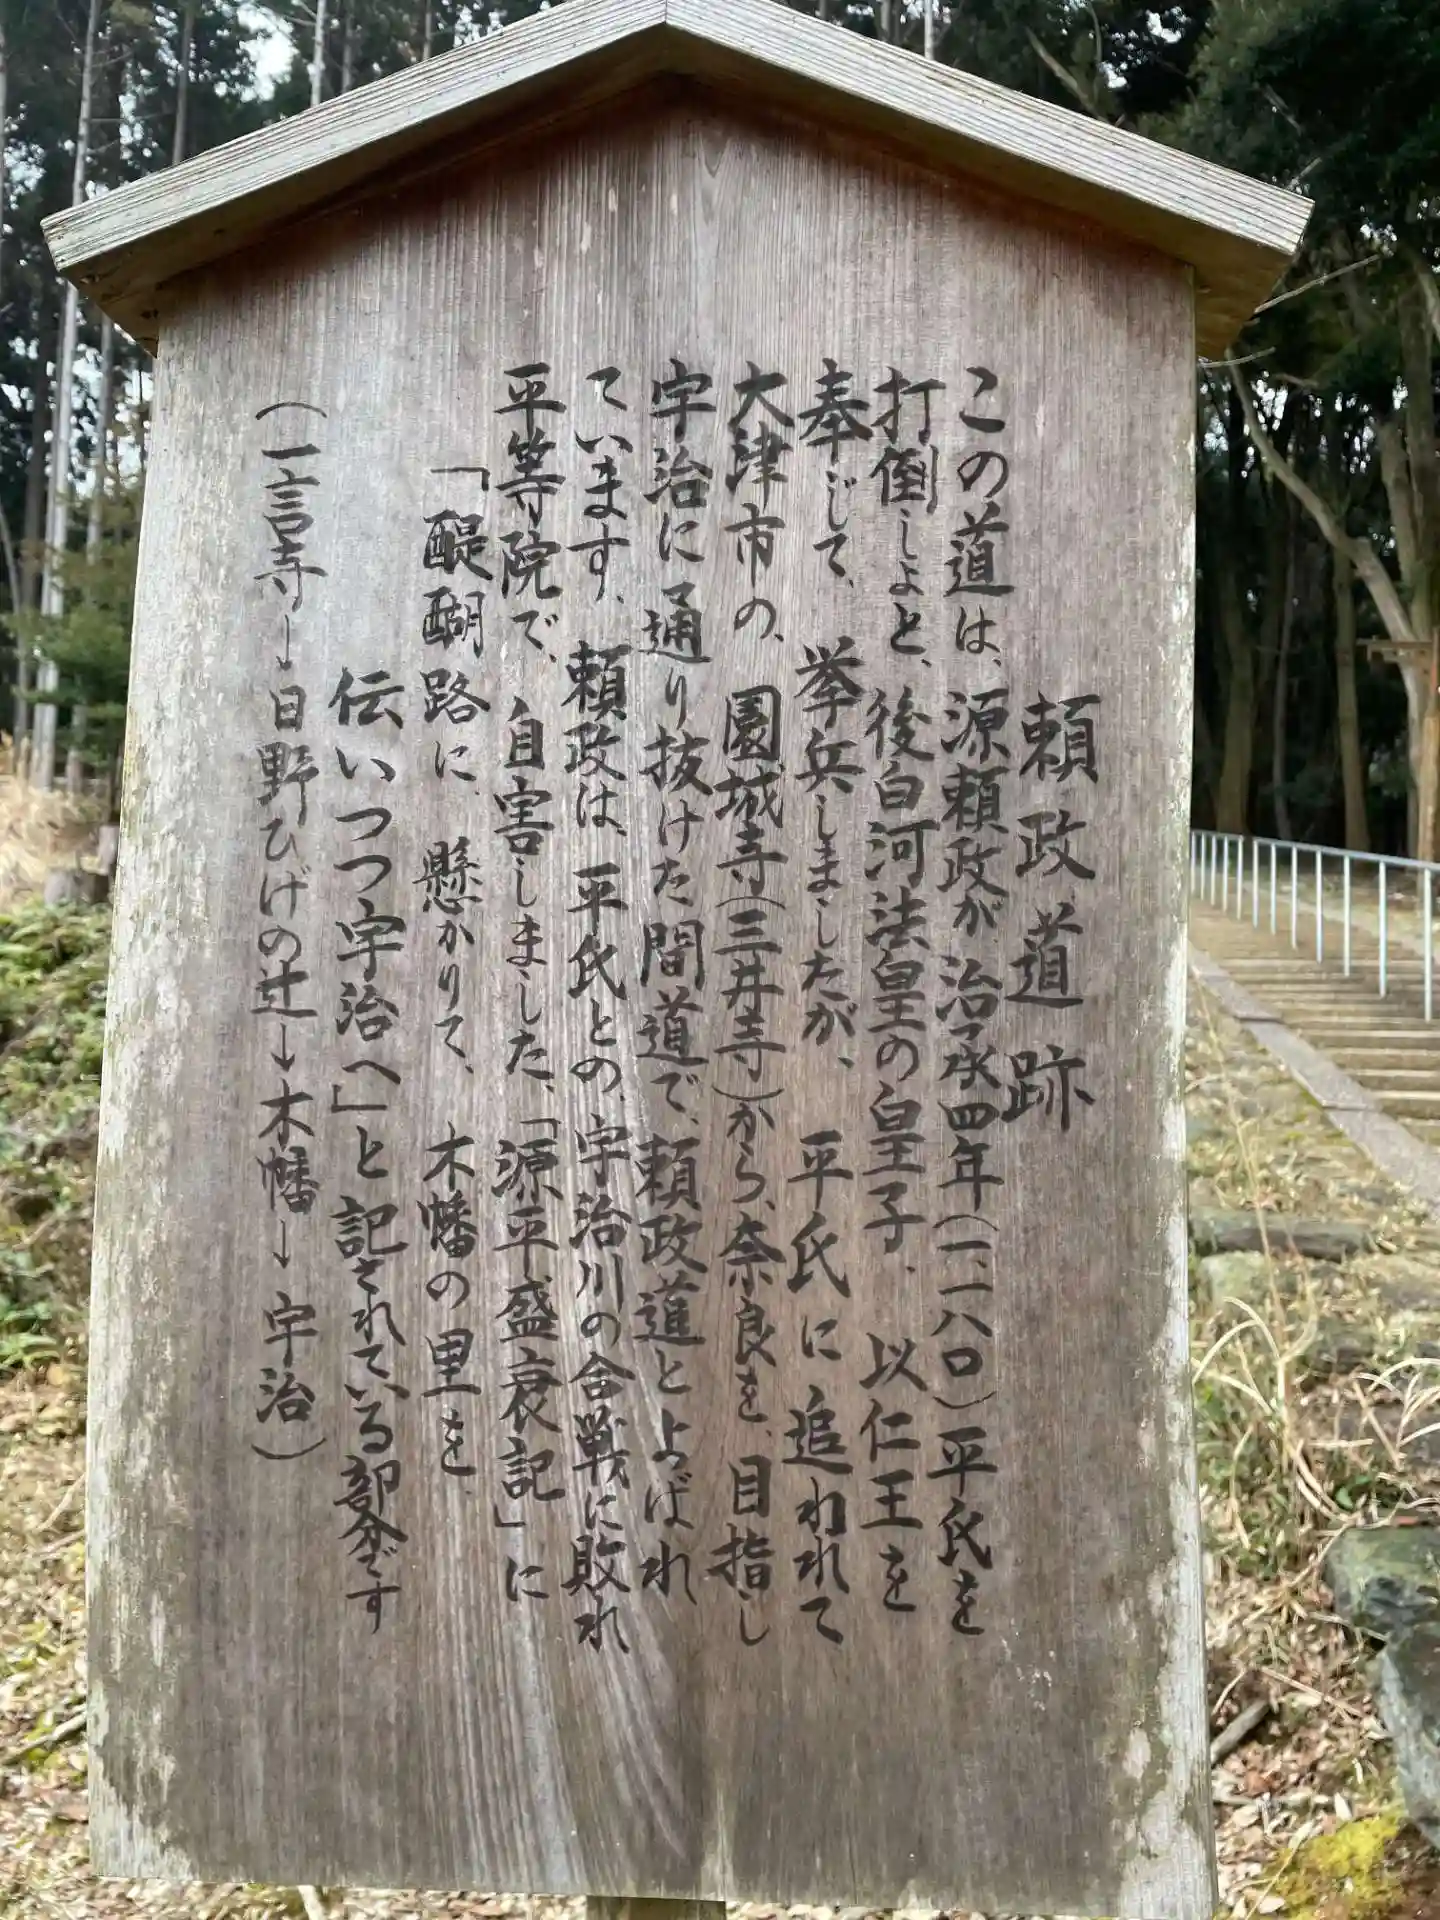 頼政道跡
この道は、源頼政が治承四年(一一八〇)平氏を
打倒しよと、後白河法皇の皇子、以仁王を
奉じて、挙兵しましたが、平氏に追われて
大津市の、園城寺(三井寺)から、奈良を、目指し
宇治に通り抜けた間道で、頼政道とよばれ
ています、頼政は、平氏との、宇治川の合戦に敗れ
平等院で、自害しました、「源平盛衰記」に
「醍醐路に、懸かりて、木幡の里を、
伝いつつ宇治へ」と記されている部分です
(一言寺→日野ひげの辻→木幡→宇治)